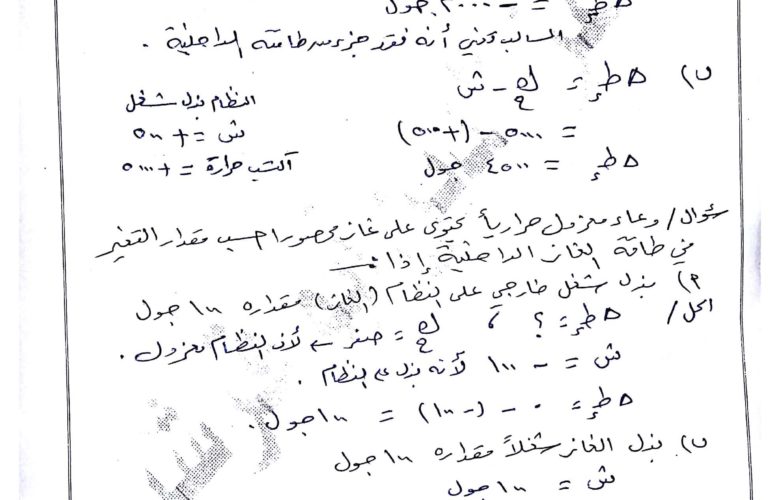 Δ طـإ = - ٢٠٠٠ جول
السالب تعني أنه فقد جزء من طاقته الداخلية .
ب) Δ طـإ = كح - ش
النظام بذل شغل
= ٥٠٠٠ - (+٥٠٠)
ش = + ٥٠٠
Δ طـإ = ٤٥٠٠ جول
اكتسب حرارة = + ٥٠٠٠
سؤال / وعاء معزول حرارياً يحتوي على غاز محصور احسب مقدار التغير
في طاقة الغاز الداخلية إذا :
٢) بذل شغل خارجي على النظام (الغاز) مقداره ١٠٠ جول
الحل / Δ طـإ = ؟ ، كح = صفر ← لأن النظام معزول .
ش = - ١٠٠ لأنه بذل على النظام .
Δ طـإ = ٠ - (-١٠٠) = ١٠٠ جول .
ب) بذل الغاز شغلاً مقداره ١٠٠ جول
ش = ١٠٠ جول